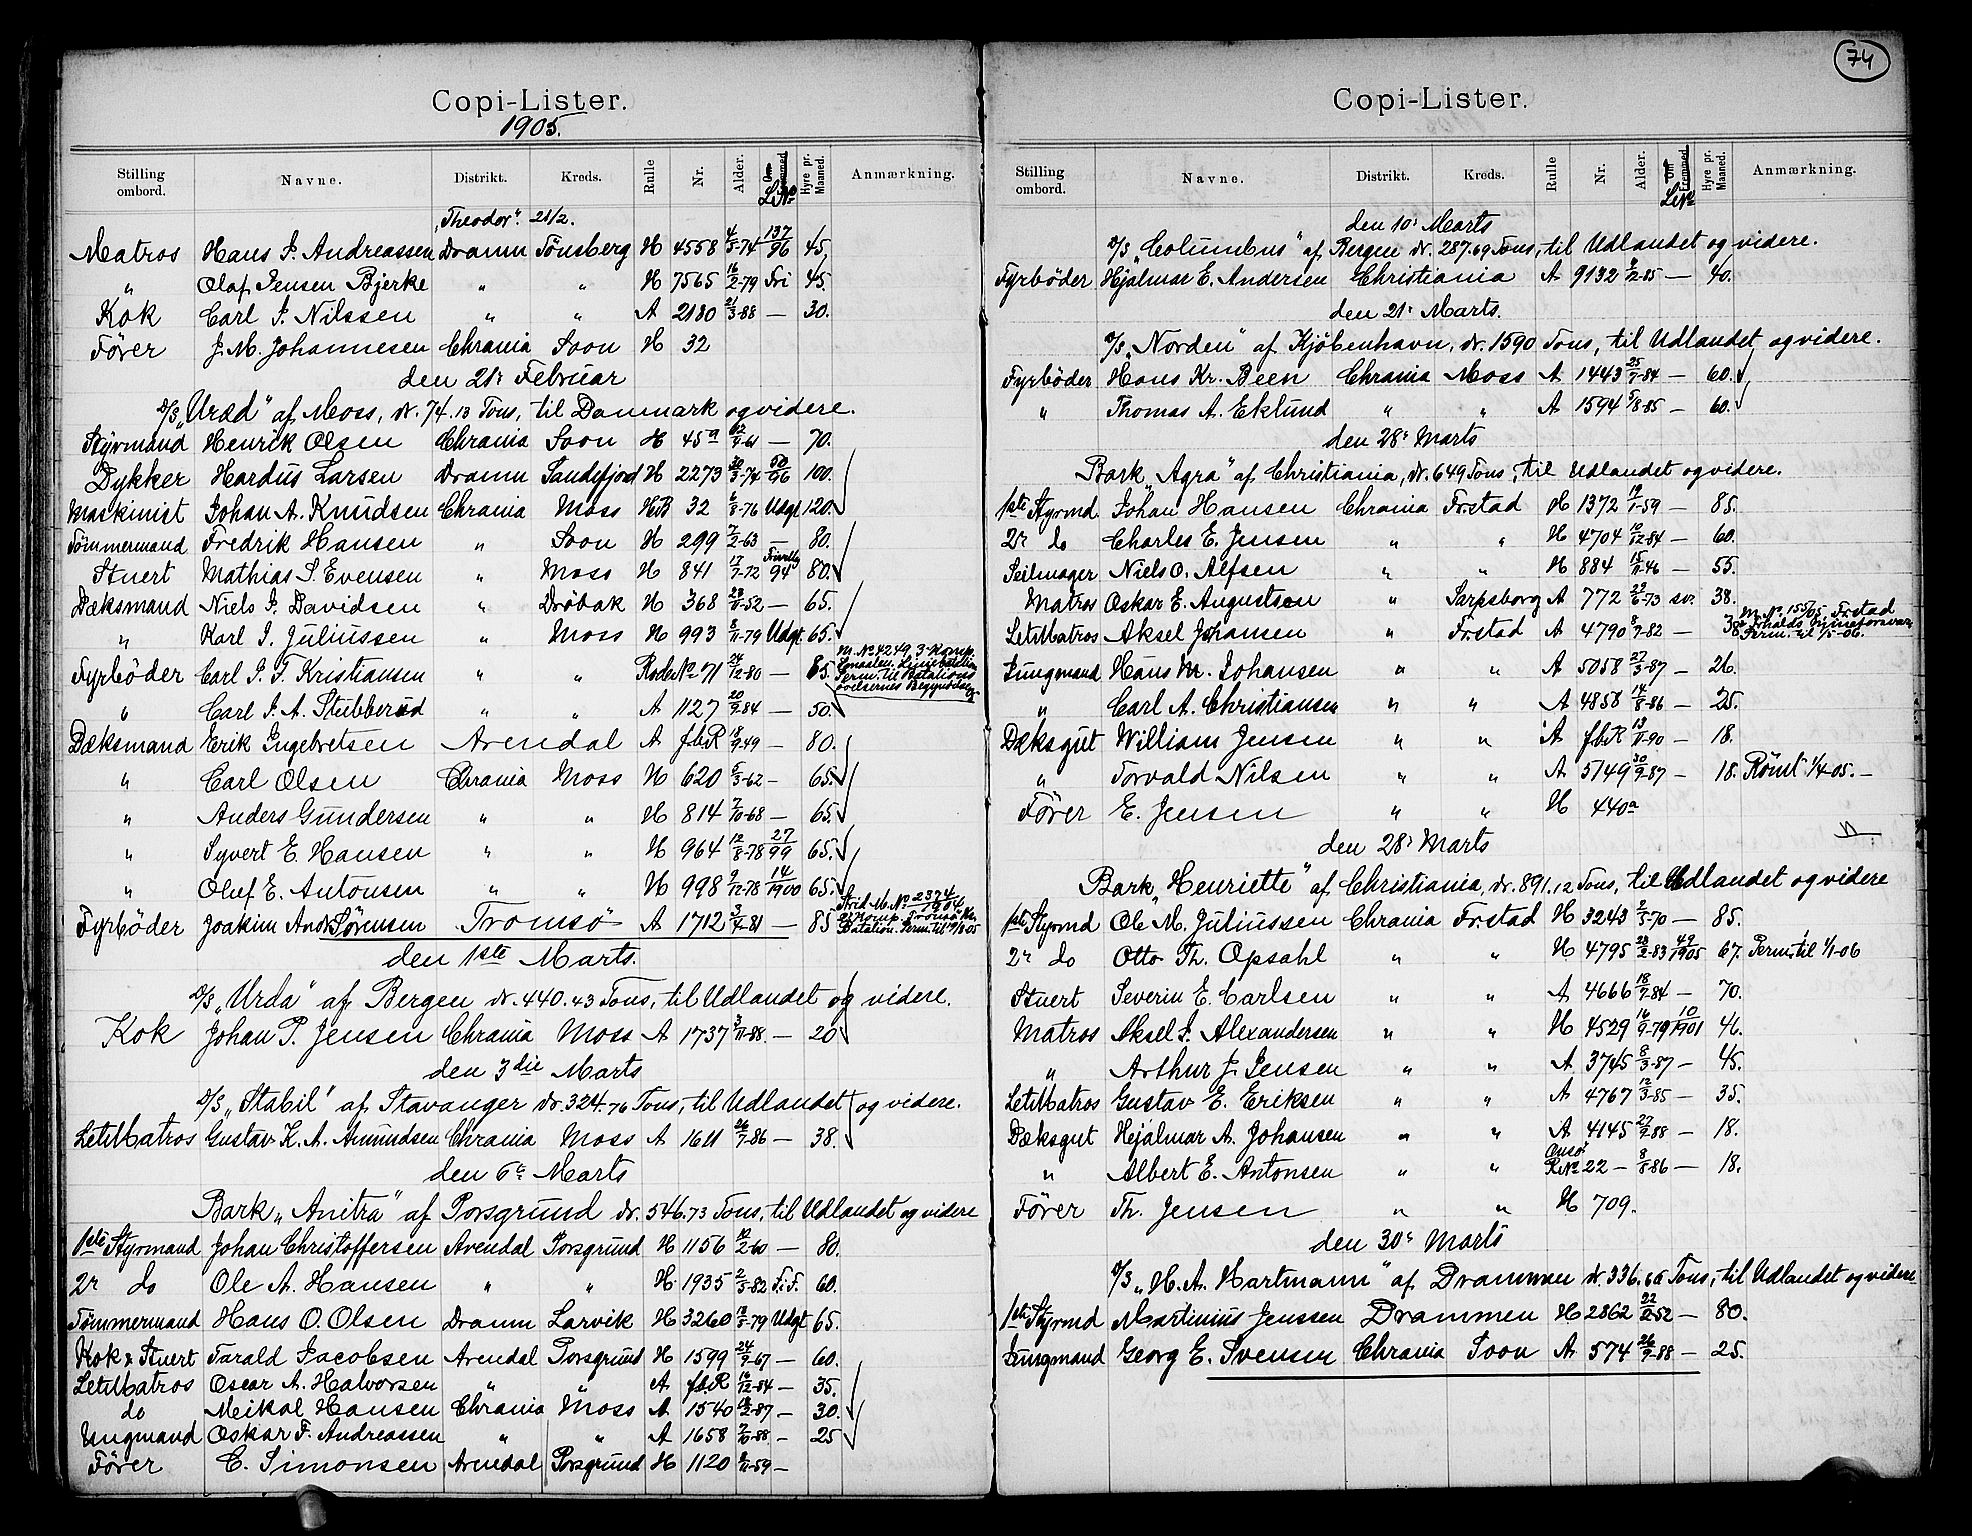 Copi-Lister.
1905.
Stilling ombord. Navne. Distrikt. Kreds. Rulle Nr. Alder. Om Fremmed. L.No Hyre pr. Maaned. Anmærkning.
"Theodor". 21/2.
Matros Hans J. Andreassen Dramn Tønsberg H 4558 4/5-74 137/96 45,
" Olaf Jensen Bjerke " " H 7565 16/2-79 Fri 45.
Kok Carl J. Nilssen " " A 2180 21/3-88 — 30.
Fører J. M. Johannesen Chrania Soon H 32
den 21r Februar
D/S "Uræd" af Moss, dr. 74.13 Tons, til Danmark og videre.
Styrmand Henrik Olsen Chrania Soon H 45a -61 — 70.
Dykker Hardus Larsen Dramn Sandefjord H 2273 30/3-74 50/96 100.
Maskinist Johan A. Knudsen Chrania Moss HB 32 6/8-76 Udgt 120.
Tømmermand Fredrik Hansen " Soon H 299 7/2-63 — 80.
Stuert Mathias S. Evensen " Moss H 841 17/7-72 Frivillig 94 80.
Dæksmand Niels J. Davidsen " Drøbak H 368 23/11-52 — 65.
" Karl J. Juliussen " Moss H 993 8/11-79 Udgt. 65.
Fyrbøder Carl J. F. Kristiansen " " Rode No 71 24/12-80 — 85. M. No 4249, 3 Komp. Smaalen. Liniebatallion Perm. til Batalions øvelsernes Begyndelse
" Carl J. A. Stubberud " " A 1127 20/9-84 — 50.
Dæksmand Erik Ingebretsen Arendal A f.b.R 18/9-49 — 80.
" Carl Olsen Chrania Moss H 620 5/3-62 — 65.
" Anders Gundersen " " H 814 7/10-68 — 65.
" Syvert E. Hansen " " H 964 12/8-78 27/99 65.
" Oluf E. Antonsen " " H 998 9/12-78 14/1900 65.
Fyrbøder Joakim Andr. Sørensen Tromsø A 1712 3/4-81 — 85 Strid. M. No 2374/1904, 2 Komp. Tromsø Batalion. Perm. til 19/8-05
den 1ste Marts.
D/S "Urda" af Bergen dr. 440.43 Tons, til Udlandet og videre.
Kok Johan P. Jensen Chrania Moss A 1737 3/11-88. — 20
den 3die Marts
D/S "Stabil" af Stavanger dr. 324.76 Tons, til Udlandet og videre.
LetMatros Gustav K. A. Amundsen Chrania Moss A 1611 26/7-86 — 38.
den 6te Marts
Bark "Anitra" af Porsgrund dr. 546.73 Tons, til Udlandet og videre
1ste Styrmand Johan Christoffersen Arendal Porsgrund H 1156 12/2-60 — 80.
2r do Ole A. Hansen " " H. 1935 2/5-82 F.F. 60.
Tømmermand Hans O. Olsen Dramn Larvik H 3260 12/5-79 Udgt 65.
Kok & Stuert Tarald Jacobsen Arendal Porsgrund H 1599 24/9-67 — 60.
LetMatros Oscar A. Halvorsen " " A f.b.R 16/12-84 — 35.
do Meikal Hansen Chrania Moss A 1540 18/2-87 — 30.
Ungmand Oskar F. Andreassen " " A 1658 7/10-88. — 25
Fører C. Simonsen Arendal Porsgrund H 1120 2/11-59 —
74
Copi-Lister.
Stilling ombord. Navne. Distrikt. Kreds. Rulle Nr. Alder. Om Fremmed. L.No Hyre pr. Maaned. Anmærkning.
den 10r Marts
D/S "Columbus" af Bergen dr. 287.69 Tons, til Udlandet og videre.
Fyrbøder Hjalmar E. Andersen Christiania A 9132 9/12-85 — 40.
den 21r Marts.
D/S "Norden" af Kjøbenhavn, dr. 1590 Tons, til Udlandet og videre.
Fyrbøder Hans Kr. Been Chrania Moss A 1443 25/7-84 — 60.
" Thomas A. Eklund " " A 1594 5/8-85 — 60.
den 28r Marts
Bark "Agra" af Christiania, dr. 649 Tons, til Udlandet og videre.
1ste Styrmd. Johan Hansen Chrania Frstad H 1372 19/1-59 — 85.
2r do Charles E. Jensen " " H 4704 10/12-84 — 60.
Seilmager Niels O. Alfsen " " H 884 15/11-46 — 55.
Matros Oskar E. Augustson " Sarpsborg A 772 22/6-73 sv. 38.
LetMatros Aksel Johansen " Frstad A 4790 8/7-82 — 38 M. No 155/05 Frstad Perm. til 1/5-06.
Jungmand Hans M. Johansen " " A 5058 27/3-87 — 26.
" Carl A. Christiansen " " A 4858 14/8-86 — 25.
Dæksgut William Jensen " " A f.b.R 13/11-90 — 18.
" Torvald Nilsen " " A 5149 30/9-87 — 18. Rømt 1/4-05. —
Fører E. Jensen " " H 440a
den 28r Marts
Bark "Henriette" af Christiania, dr. 891.12 Tons, til Udlandet og videre
1ste Styrmd Ole M. Juliussen Chrania Frstad H 3243 2/5-70 — 85.
2r do Otto Th. Opsahl " " H 4795 28/2-83 49/1905 67. Perm. til 1/1-06
Stuert Severin E. Carlsen " " A 4666 18/7-84 — 70.
Matros Aksel J. Alexandersen " " H 4529 16/9-79 10/1901 46.
" Arthur J. Jensen " " A 3745 8/3-87 — 45.
LetMatros Gustav E. Eriksen " " A 4767 12/3-85 — 35.
Dæksgut Hejalmar A. Johansen " " A 4145 27/9-88 — 18.
" Albert E. Antonsen " " Onsø R.No 22 — 8/8-86 — 18.
Fører Th. Jensen " " H 709.
den 30r Marts
D/S "H. A. Hartmann" af Drammen dr. 336.66 Tons, til Udlandet og videre
1ste Styrmd Martinius Jenssen Drammen H 2862 22/2-52 — 80.
Jungmand Georg E. Svensen Chrania Soon A 574 26/9-88 — 25.